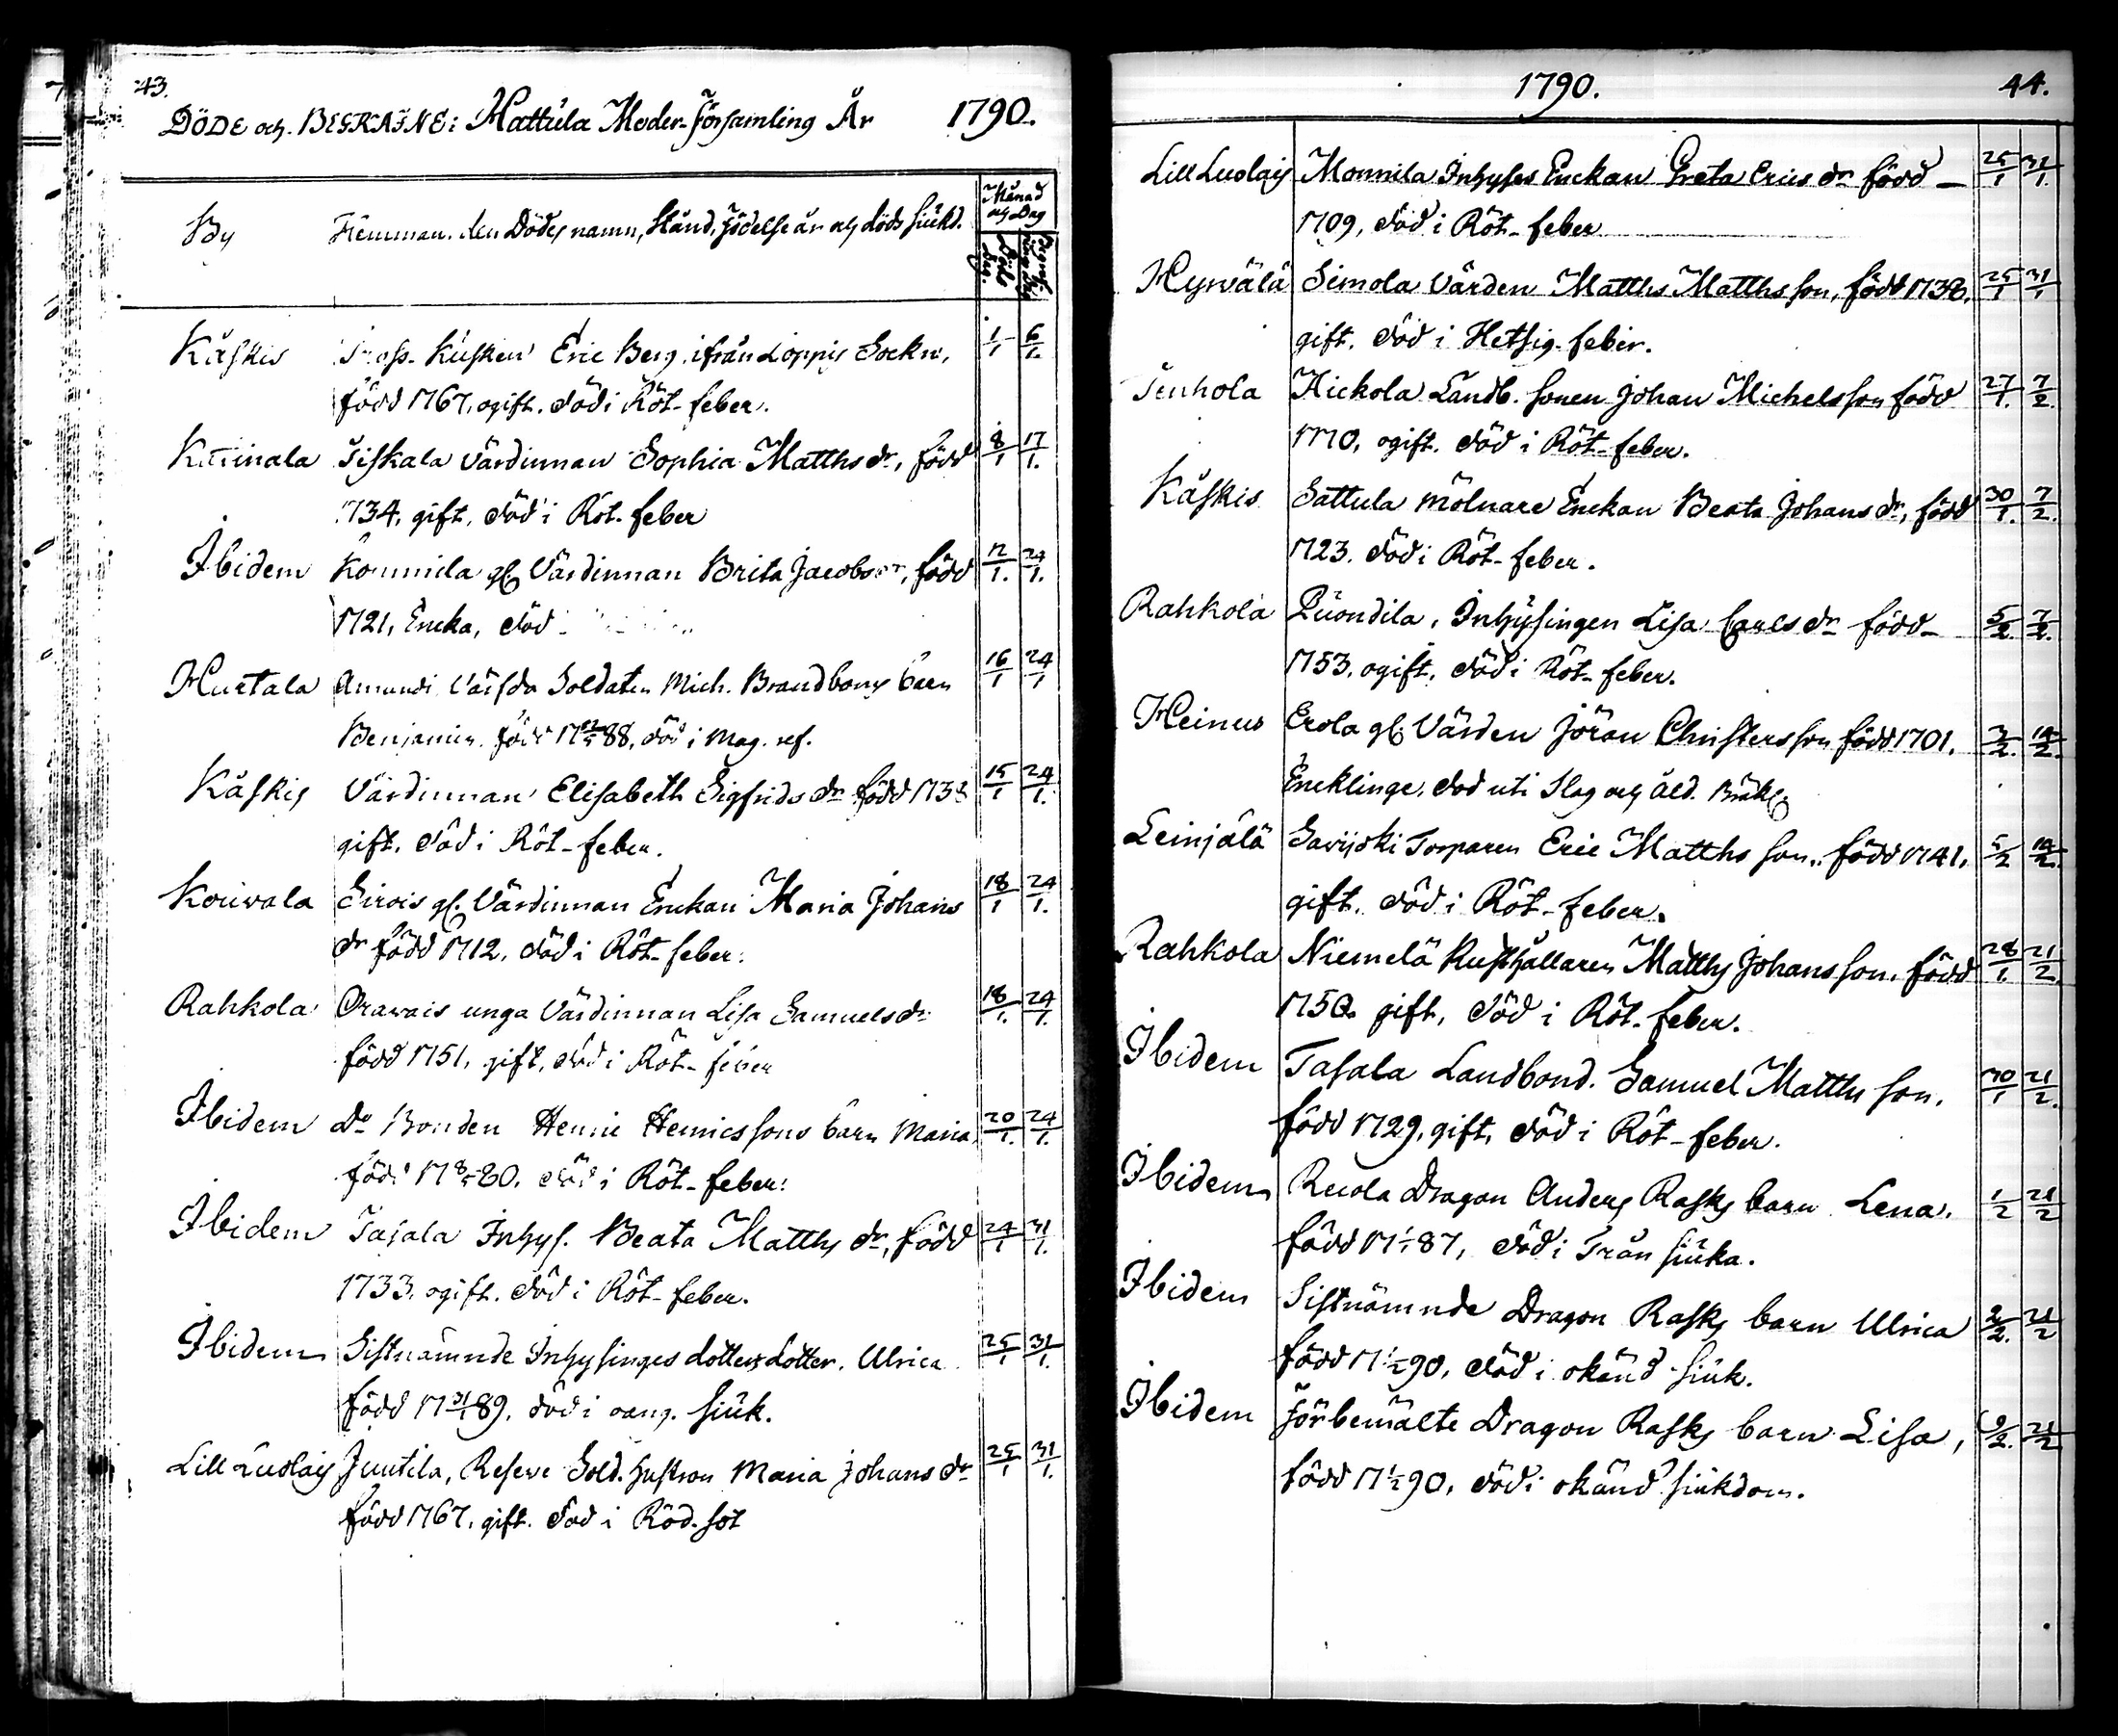 43.
DÖDE och BEGRAFNE i Hattula Moder-Församling År 1790.
By Hemman, den Dödes namn, Stånd, Födelse år och döds siukd. Månad och Dag
Döds dag. Begrafnings dag
Kåskis Tross-Kusken Eric Berg ifrån Loppis Sockn, 1/1 6/1.
född 1767, ogift. död i Röt-feber.
Kattinala Tiskala Värdinnan Sophia Matthsdr, född 8/1 17/1.
1734, gift, död i Röt-feber
Ibidem gl. Värdinnan Brita Jacobsdr, född 12/1. 24/1.
1721, Encka, död
Hurtala Amundi Värfda Soldaten Mich. Brandbergs barn 16/1 24/1
Benjamin. född 17 88, död i Mag. ref.
Kåskis Värdinnan Elisabeth Sigfrids dr född 1738 15/1 24/1.
gift. död i Röt-feber.
Kouvala Sirois gl. Värdinnan Enckan Maria Johans 18/1 24/1.
dr född 1712, död i Röt-feber.
Rahkola Orawais unga Värdinnan Lisa Samuelsdr 18/1. 24/1.
född 1751, gift, död i Röt-feber
Ibidem Do Bonden Henric Henricssons barn Maria, 20/1. 24/1.
född 17 80. död i Röt-feber.
Ibidem Tasala Inhys. Beata Matths dr, född 24/1 31/1.
1733, ogift. död i Röt-feber.
Ibidem Sistnämnde Inhysinges dotters dotter. Ulrica 25/1 31/1.
född 17 31/1 89, död i oang. siuk.
Lill Luolais Juutila, Reserve Sold. hustrun Maria Johans dr 25/1 31/1.
född 1767, gift. död i Röd-sot
1790. 44.
Lill Luolais Monnila Inhyses Enckan Greta Erics dr född 25/1 31/1.
1709, död i Röt-feber
Hyrwälä Simola Värden Matths Matthsson, född 1738, 25/1 31/1
gift. död i Hetsig-feber.
Tenhola Hickola Landb. sonen Johan Michelsson född 27/1. 7/2.
1770, ogift. död i Röt-feber.
Kåskis Sattula Mölnare Enckan Beata Johans dr, född 30/1. 7/2.
1723. död i Röt-feber.
Rahkola Inhysingen Lisa Carls dr född 5/2. 7/2.
1753, ogift, död i Röt-feber.
Heinus Erola gl. Värden Jöran Christersson född 1701. 3/2. 14/2.
Encklinge, död uti Slag och åld. Bräkl.
Leinjälä Savijoki Torparen Eric Matthsson, född 1741, 5/2 14/2.
gift. död i Röt-feber.
Rahkola Niemelä Rusthållaren Matths Johansson, född 28/1. 21/2.
1750. gift, död i Röt-feber.
Ibidem Tasala Landbond. Samuel Matthsson, 30/1 21/2.
född 1729, gift, död i Röt-feber.
Ibidem Ruola Dragon Anders Rasks barn Lena. 1/2 21/2
född 17 87, död i Trån siuka.
Ibidem Sistnämnde Dragon Rasks barn Ulrica 2/2. 21/2
född 17 90, död i okänd siuk.
Ibidem Förbemälte Dragon Rasks barn Lisa, 9/2. 21/2
född 17 90, död i okänd siukdom.